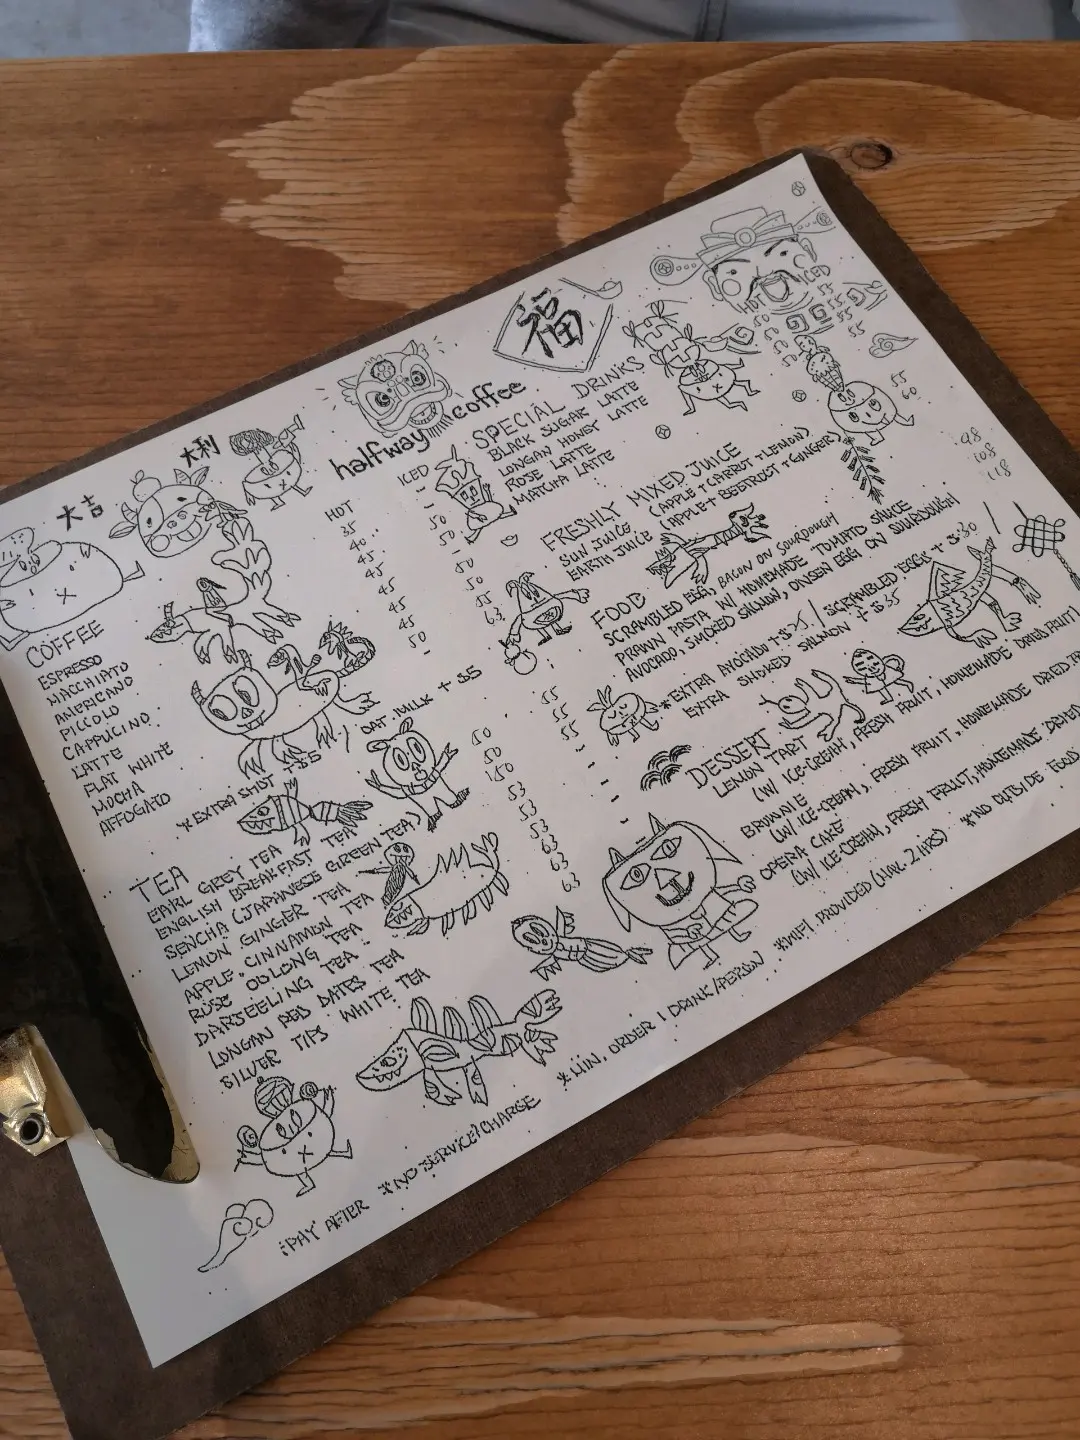 大吉
大利
halfway coffee
福
COFFEE
HOT
ICED
ESPRESSO
MACCHIATO
AMERICANO
PICCOLO
CAPPUCINO
LATTE
FLAT WHITE
MOCHA
AFFOGATO
35
40
45
45
45
45
50
-
*EXTRA SHOT +$5 / OAT MILK + $5
TEA
EARL GREY TEA
ENGLISH BREAKFAST TEA
SENCHA (JAPANESE GREEN TEA)
LEMON GINGER TEA
APPLE CINNAMON TEA
ROSE OOLONG TEA
DARJEELING TEA
LONGAN RED DATES TEA
SILVER TIPS WHITE TEA
53
53
63
63
63
SPECIAL DRINKS
HOT
ICED
BLACK SUGAR LATTE
LONGAN HONEY LATTE
ROSE LATTE
MATCHA LATTE
55
55
55
FRESHLY MIXED JUICE
SUN JUICE (APPLE + CARROT + LEMON)
55
EARTH JUICE (APPLE + BEETROOT + GINGER)
60
FOOD
SCRAMBLED EGG, BACON ON SOURDOUGH
98
PRAWN PASTA W/ HOMEMADE TOMATO SAUCE
108
AVOCADO, SMOKED SALMON, ONSEN EGG ON SOURDOUGH
118
*EXTRA AVOCADO + / SCRAMBLED EGG + $30
EXTRA SMOKED SALMON + $35
DESSERT
LEMON TART
(W/ ICE-CREAM, FRESH FRUIT, HOMEMADE DRIED FRUIT)
BROWNIE
(W/ ICE-CREAM, FRESH FRUIT, HOMEMADE DRIED
OPERA CAKE
(W/ ICE-CREAM, FRESH FRUIT, HOMEMADE DRIED
:PAY AFTER *NO SERVICE CHARGE *MIN. ORDER 1 DRINK/PERSON *WIFI PROVIDED (MAX. 2 HRS) *NO OUTSIDE FOOD